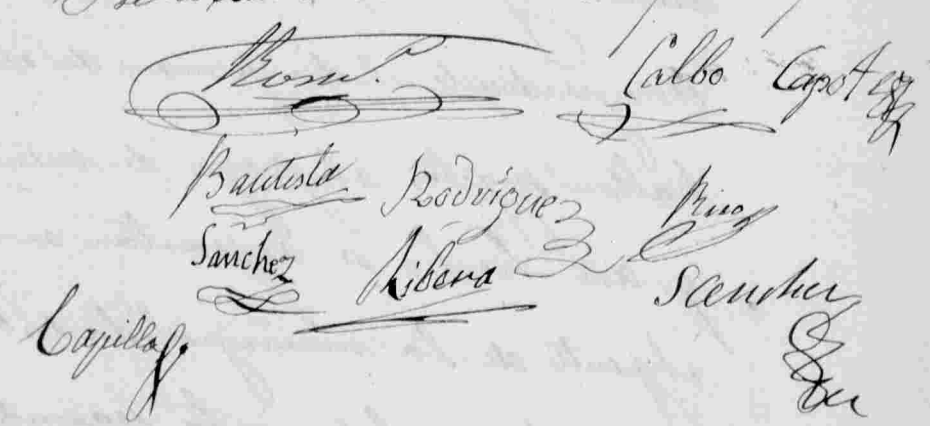 Calbo Capote
Bautista Rodriguez Rico
Sanchez Ribera
Sanchez
Capilla